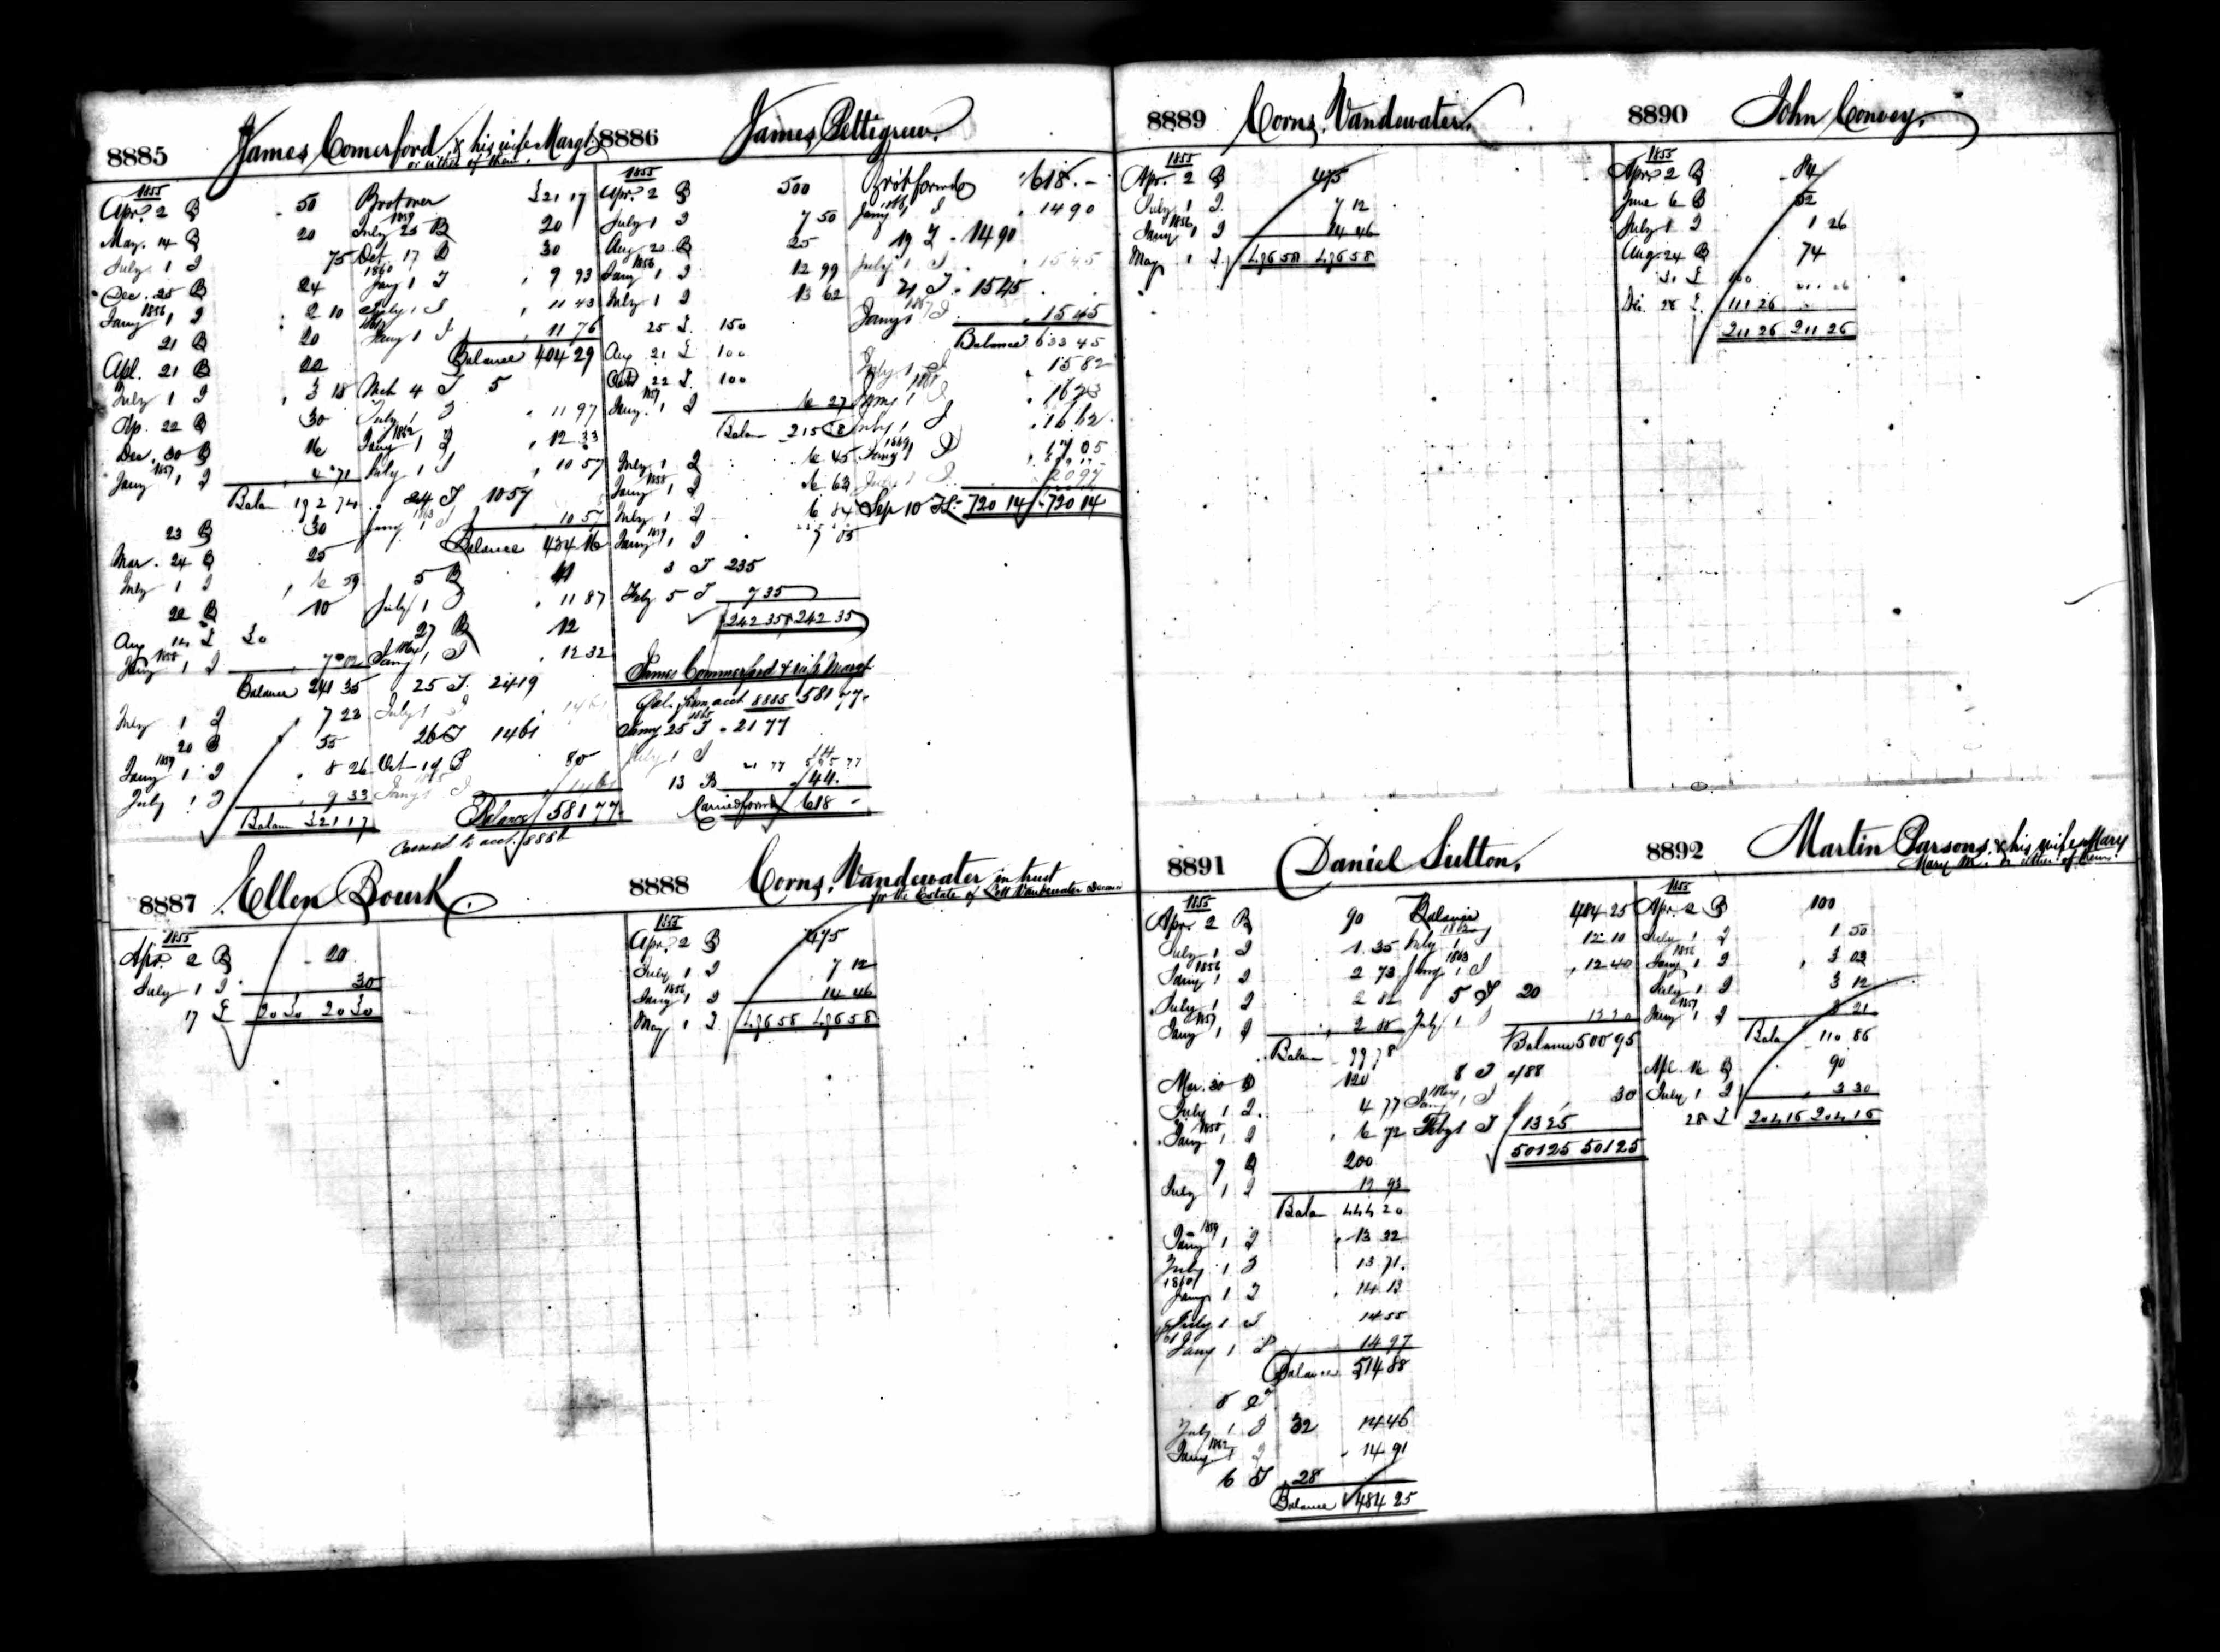 8885 James Comerford & his wife Margt
or either of them.
1855
Apr. 2 B 50
May. 14 B 20
July. 1 I 75
Dec. 25 B 24
1856
Jany 1 I 2 10
21 B 20
Apl. 21 B 22
July 1 I 3 18
22 B 30
Dec. 30 B 16
1857
Jany 1 I 4 71
Balan 192 74
23 B 30
Mar. 24 B 25
July 1 I 6 59
22 B 10
Aug 14 £ 30
1858
Jany 1 I 7 02
Balance 241 35
July 1 I 7 23
20 B 55
1859
Jany 1 I 8 26
July 1 I 9 33
Balan 321 17
Brot over 321 17
1859
July 25 B 20
Oct. 17 B 30
1860
Jany 1 I 9 93
July 1 I 11 43
Jany 1 I 11 76
Balance 404 29
Mch 4 I 5
July 1 I 11 97
1862
Jany 1 I 12 33
July 1 I 10 57
24 I 10 57
1863
Jany 1 I 10 57
Balance 434 16
5 B
July 1 I 11 87
27 B 12
Jany 1 I 12 32
25 I 24 19
July 1 I 14 61
26 I 14 61
Oct 19 B 80
Jany 1 I 14 61
Balance 581 77
Carried to acct. 8886
8886 James Pettigrew.
1855
Apr. 2 B 500
July 1 I 7 50
Aug 20 B 25
1856
Jany 1 I 12 99
July 1 I 13 62
25 I. 150
Aug 21 £ 100
22 I. 100
1857
Jany. 1 I 6 27
Balan 215 38
July 1 I 6 45
1858
Jany 1 I 6 63
July 1 I 6 84
1859
Jany 1 I 7 05
3 I 235
Feby 5 I 7 35
242 35 242 35
James Commerford & wife Margt
Bal. from acct 8885 581 77
1865
Jany 25 I 21 77
July 1 I 14
13 B 44.
Carried forwd 618 -
Brot forwd 618.-
Jany I 14 90
19 I 14 90
July 1 I 15 45
21 I 15 45
1867
Jany 1 I 15 45
Balance 633 45
July 1 I 15 82
1868
Jany 1 I 16 23
July 1 I 16 62
1869
Jany 1 I 17 05
July 1 I 20 97
Sep 10 720 14 720 14
8887 Ellen Bourk.
1855
Apr. 2 B 20
July 1 I 30
17 £ 20 30 20 30
8888 Corns. Vandewater in trust
for the Estate of Vandewater
1855
Apr. 2 B 475
July 1 I 7 12
1856
Jany 1 I 14 46
May 1 I 496 58 496 58
8889 Corns. Vandewater.
1855
Apr. 2 B 475
July 1 I 7 12
1856
Jany 1 I 14 46
May 1 I 496 58 496 58
8890 John Convey.
1855
Apr. 2 B 84
June 6 B 52
July 1 I 1 26
Aug 24 B 74
31 £ 100
Dec. 28 £ 111 26
211 26 211 26
8891 Daniel Sutton.
1855
Apr. 2 B 90
July 1 I 1 35
1856
Jany 1 I 2 73
July 1 I 2 82
1857
Jany 1 I 2 88
Balan 99 78
Mar. 30 B 120
July 1 I. 4 77
1858
Jany 1 I 6 72
7 B 200
July 1 I 12 93
Balan 444 20
1859
Jany 1 I 13 32
July 1 I 13 71
1860
Jany 1 I 14 13
July 1 I 14 55
Jany 1 I 14 97
Balance 514 88
July 1 I 32 14 46
1862
Jany 1 I 14 91
6 I 28
Balance 484 25
Balance 484 25
1862
July 1 I 12 10
1863
Jany 1 I 12 40
5 I 20
July 1 I 12 20
Balance 500 95
8 I 488
Jany 1 I 30
Feby 1 I 13 25
501 25 501 25
8892 Martin Parsons, & his wife Mary
Mary M. or either of them.
1855
Apr. 2 B 100
July 1 I 1 50
1856
Jany 1 I 3 03
July 1 I 3 12
1857
Jany 1 I 3 21
Balan 110 86
Apl. 16 B 90
July 1 I 3 30
28 I 204 16 204 16